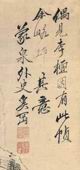 偶見李檀園有此幀
余略師其意
蒙泉外史奚岡